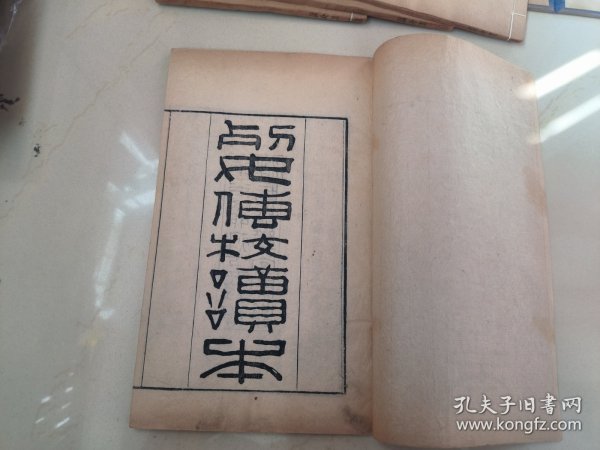 列女傳校讀本
孔夫子旧书网
www.kongfz.com